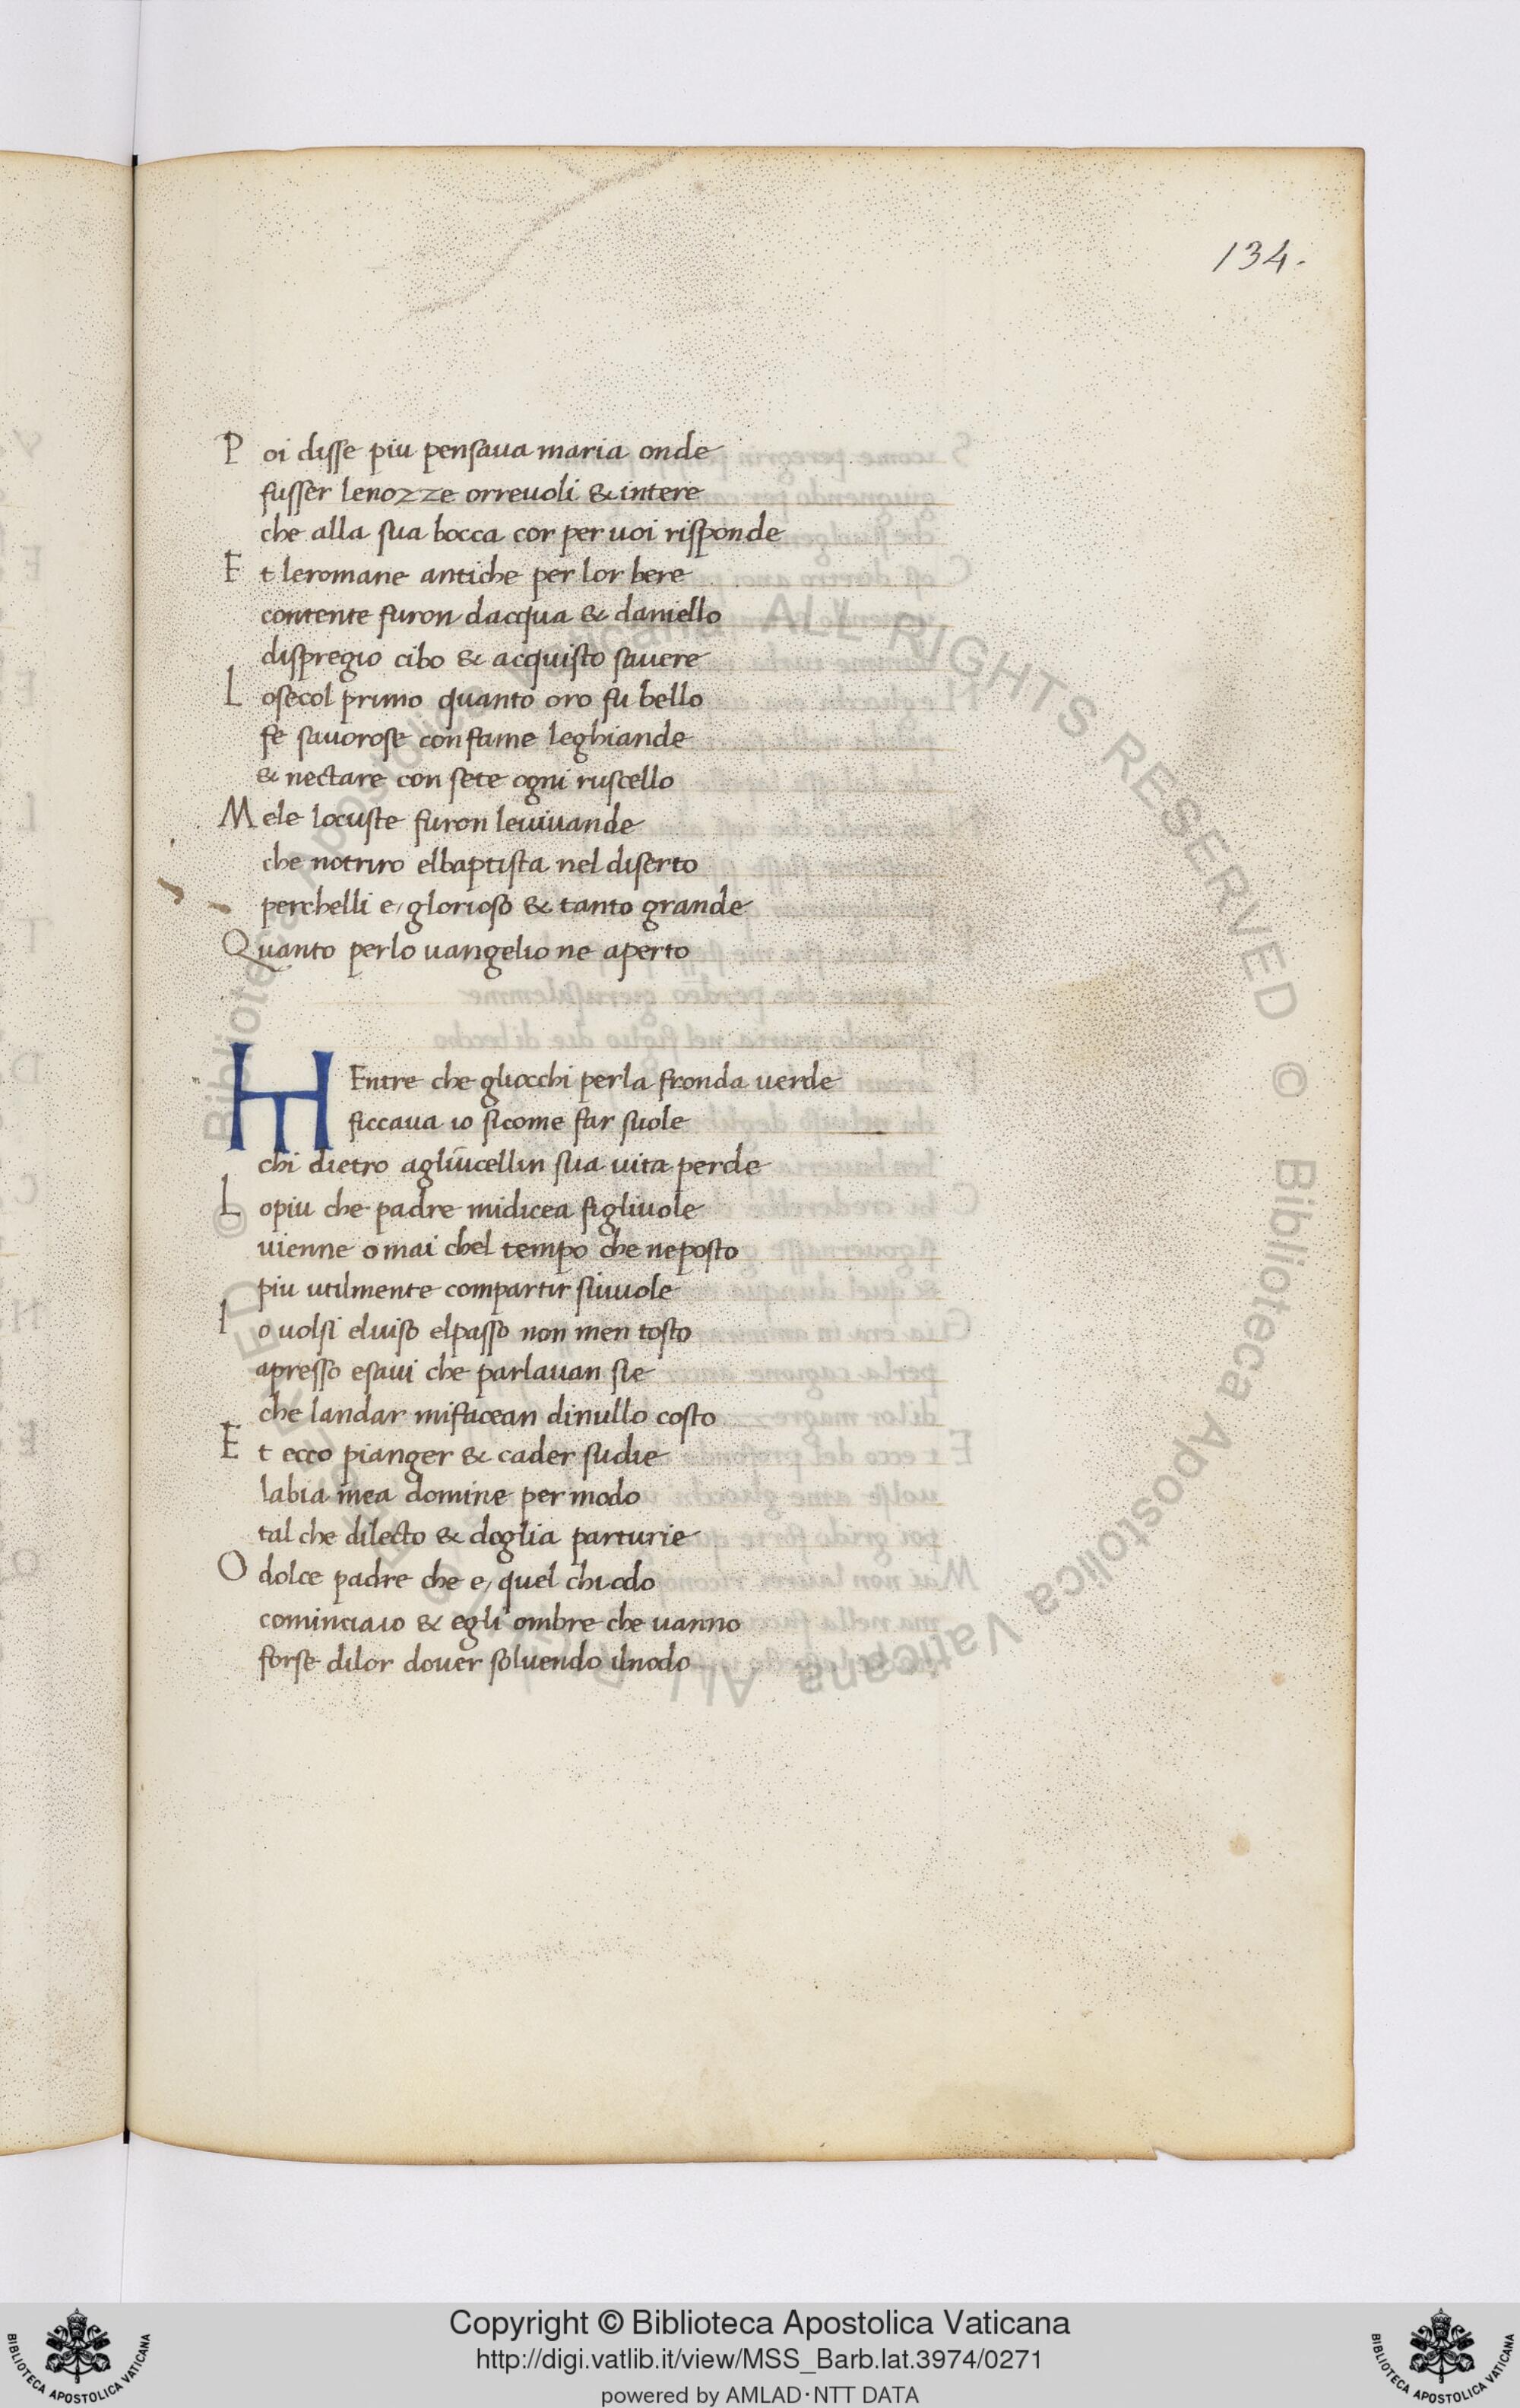 134.
Poi disse piu pensaua maria onde
fusser lenozze orreuoli & intere
che alla sua bocca cor per uoi risponde
Et leromane antiche per lor bere
contente furon dacqua & daniello
dispregio cibo & acquisto sauere
Losecol primo quanto oro fu bello
fe sauorose con fame leghiande
& nectare con sete ogni ruscello
Mele locuste furon leuiuande
che notriro elbaptista nel diserto
perchelli e, glorioso & tanto grande
Quanto perlo uangelio ne aperto
MEntre che gliocchi perla fronda uerde
ficcaua io sicome far suole
chi dietro agliucellin sua uita perde
Lopiu che padre midicea figliuole
uienne omai chel tempo che neposto
piu utilmente compartir siuuole
Io uolsi eluiso elpasso non men tosto
apresso esaui che parlauan sie
che landar mifacean dinullo costo
Et ecco pianger & cader sudie
labia mea domine per modo
tal che dilecto & doglia parturie
O dolce padre che e, quel chiodo
cominciaio & egli ombre che uanno
forse dilor douer soluendo ilnodo
© Biblioteca Apostolica Vaticana ALL RIGHTS RESERVED © Biblioteca Apostolica Vaticana ALL RIGHTS RESERVED
Copyright © Biblioteca Apostolica Vaticana
http://digi.vatlib.it/view/MSS_Barb.lat.3974/0271
powered by AMLAD·NTT DATA
BIBLIOTECA APOSTOLICA VATICANA
BIBLIOTECA APOSTOLICA VATICANA